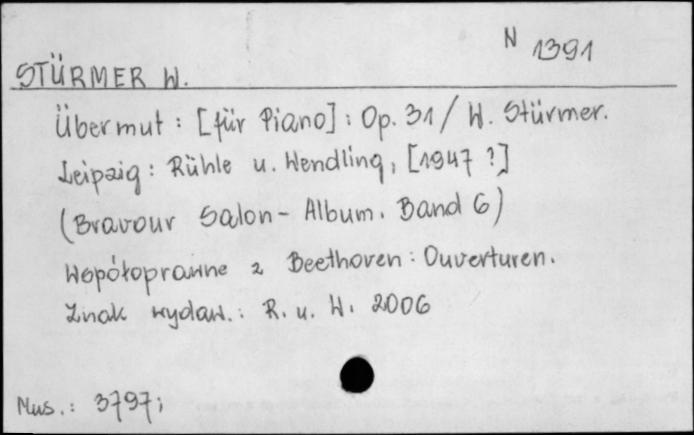 N 1391
STÜRMER W.
Übermut : [für Piano] : Op. 31 / W. Stürmer.
Leipzig : Rühle u. Wendling, [1947 ?]
(Bravour Salon - Album. Band 6)
Współoprawne z Beethoven : Ouverturen.
Znak wydaw. : R. u. W. 2006
Mus. : 3797;